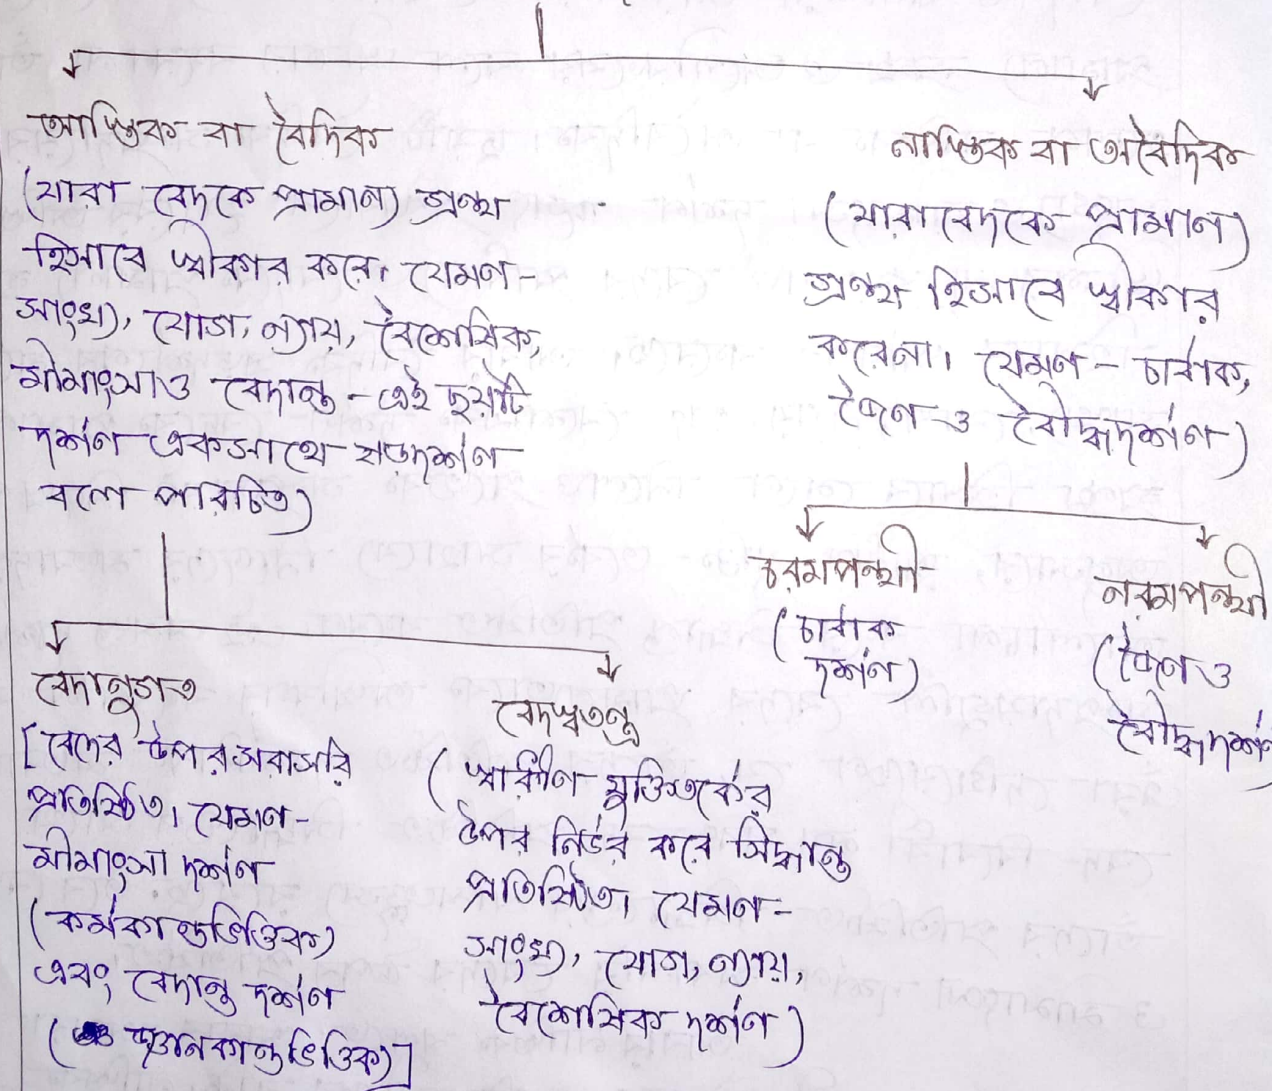 আস্তিক বা বৈদিক
(যারা বেদকে প্রামাণ্য গ্রন্থ
হিসাবে স্বীকার করে। যেমণ-
সাংখ্য, যোগ, ন্যায়, বৈশেষিক,
মীমাংসা ও বেদান্ত - এই ছয়টি
দর্শণ একসাথে ষড়দর্শণ
বলে পরিচিত)
নাস্তিক বা অবৈদিক
(যারা বেদকে প্রামাণ্য
গ্রন্থ হিসাবে স্বীকার
করেনা। যেমণ - চার্বাক,
জৈণ ও বৌদ্ধদর্শণ)
চরমপন্থী
(চার্বাক
দর্শণ)
নরমপন্থী
(জৈণ ও
বৌদ্ধদর্শণ
বেদানুগত
[বেদের উপর সরাসরি
প্রতিষ্ঠিত। যেমণ-
মীমাংসা দর্শণ
(কর্মকাণ্ডভিত্তিক)
এবং বেদান্ত দর্শণ
(জ্ঞানকাণ্ডভিত্তিক)]
বেদস্বতন্ত্র
(স্বাধীণ যুক্তিতর্কের
উপর নির্ভর করে সিদ্ধান্ত
প্রতিষ্ঠিত। যেমণ-
সাংখ্য, যোগ, ন্যায়,
বৈশেষিক দর্শণ)